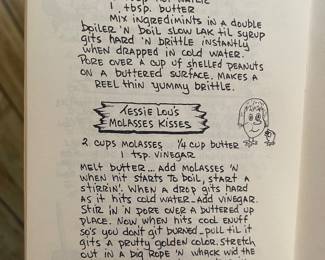 1 tbsp. butter
Mix ingrediments in a double
boiler 'n boil slow lak til syrup
gits hard 'n brittle instantly
when drapped in cold water.
Pore over a cup of shelled peanuts
on a buttered surface. Makes a
reel thin yummy brittle.
Tessie Lou's
Molasses Kisses
2 cups molasses ¼ cup butter
1 tsp. vinegar
Melt butter... add molasses 'n
when hit starts to boil, start a
stirrin'. When a drop gits hard
as it hits cold water—add vinegar.
Stir in 'n pore over a buttered up
place. Now when hits cool enuff
so's you don't git burned—pull til it
gits a prutty golden color. Stretch
out in a big rope 'n whack wid the